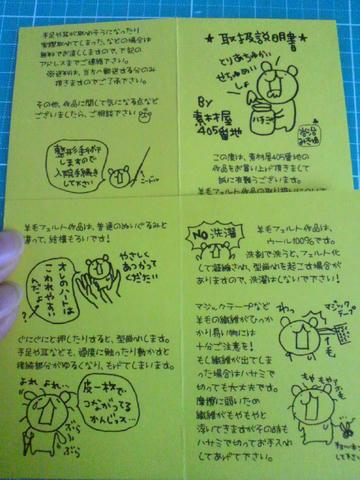 手足や耳が取れそうになったり
実際取れてしまった、などの場合は
無料でお直ししますので、下記の
アドレスまでご連絡下さい。
※送料は、当方へ郵送する分のみ
頂きますのでご了承下さい。
その他、作品に関して気になる点など
ございましたら、ご相談下さい
整形手術が
しますので
入院手続き
して下さい
★取扱説明書★
とりあちゅかい
せちゅめいしょ
ハチミツ
By
素材屋
405番地
この度は、素材屋405番地の
作品をお買い上げ頂きまして
誠に有難うございます。
羊毛フェルト作品の取り扱いについて
羊毛フェルト作品は、普通のぬいぐるみと
違って、結構もろいです!
オレのハートは
こわれやすい
んだよ?
やさしく
あつかって
くだたい
ぐにぐにと押したりすると、型崩れします。
手足や耳なども、過度に触ったり動かすと
接続部分がゆるくなり、もげてしまいます。
よれ よれ、
皮一枚で
つながってる
かんじっス…
ぶら
ぶら
NO洗濯
羊毛フェルト作品は、
ウール100%です。
洗剤で洗うと、フェルト化
して縮んでしまい、型崩れを起こす場合が
ありますので、洗濯はしないで下さい!
マジックテープなど
羊毛の繊維がひっか
かり易い物には
十分ご注意を!
もし繊維が出てしま
った場合はハサミで
切っても大丈夫です。
摩擦に弱いため
繊維がもやもやと
浮いてきますがその時も
ハサミで切ってお手入れ
してあげて下さい。
わっ
マジック
テープ
羊毛
もやもやっと
して下さい